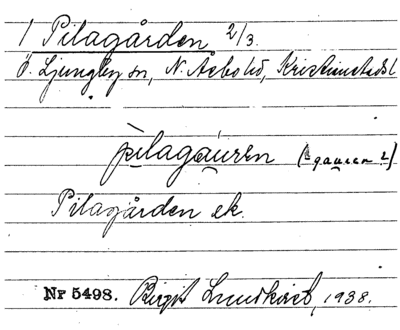 1 Pilagården 2/3.
Ö. Ljungby sn, N. Åsbo hd, Kristianstads l
pìlagáuren (
Pilagården ek.
Nr 5498. Birgit Lundkvist, 1938.